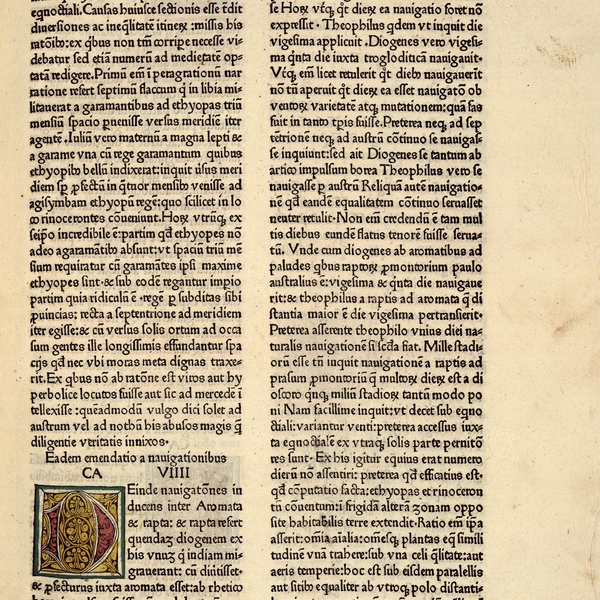 eqnoctiali. Causas huiusce sectionis esse tēdit
diuersiones ac ineq̄litatē itineȝ: missis his
ratōib₉: ex q̄bus non tm̄ corripe necesse vi-
debatur sed etiā numerū ad medietatē op-
tatā redigere. Primū em̄ ī peragrationū nar
ratione refert septimū flaccum q̄ in libia mi-
litauerat a garamantibus ad ethyopas triū
mensiū spacio puenisse versus meridiē iter
agentē. Iuliū vero maternū a magna lepti &
a garame vna cū rege garamantum quibus
ethyopib₉ bellū indixerat: inquit usus meri
diem sp̄ ꝓfectā in q̄tuor mensib₉ venisse ad
agisymbam ethyopū regē: quo scilicet in lo
co rinocerontes cōueniunt. Hoꝝ vtrūqȝ ex
seipo incredibile ē: partim qd ethyopes nō
adeo agaramātib₉ absunt: vt spaciū triū mē
sium requiratur cū garamātes ipsi maxime
ethyopes sint. & sub eodē regantur impio
partim quia ridiculū ē. regē p̱ subditas sibi
ꝓuincias: recta a septentrione ad meridiem
iter egisse: & cū versus solis ortum ad occa
sum gentes ille longissimis effundantur spa
cijs qd nec vbi moras meta dignas traxe-
rit. Ex qbus nō ab ratōne est viros aut hy
perbolice locutos fuisse aut sic ad mercede ī
tellexisse: quēadmodū vulgo dici solet ad
austrum vel ad nothū bis abusos magis q̄
diligentie veritatis innixos.
Eadem emendatio a nauigationibus
CA VIIII
Einde nauigatōnes in
ducens inter Aromata
& rapta: & rapta refert
quendaȝ diogenem ex
his vnuȝ q̄ indiam mi-
grauerant: cū diuitisset
& ꝓfecturus iuxta aromata esset: ab rhetico
se Hoꝝ vt̄qȝ qt̄ dieꝝ ea nauigatio foret nō
expressit. Theophilus qdem vt inquit die
vigesima applicuit. Diogenes vero vigesi-
ma q̄nta die iuxta trogloditicā nauigauit.
Vt̄cqȝ em̄ licet retulerit qt̄ dieb₉ nauigauerīt
nō tn̄ aperuit qt̄ dieꝝ ea esset nauigatō ob
ventoꝝ varietatē atqȝ mutationem: quā fas
fuit in tanto tp̄is fuisse. Preterea neqȝ ad sep
tētrionē neqȝ ad austrū cōtinuo se nauigas-
se inquiunt: sed ait Diogenes se tantum ab
artico impulsum borea Theophilus vero se
nauigasse p̱ austrū Reliquā autē nauigatio-
nē qd eandē equalitatem cōtinuo seruasset
neuter retulit. Non em̄ credendū ē tam mul
tis diebus eundē flatus tenorē fuisse serua-
tū. Vnde cum diogenes ab aromatibus ad
paludes qbus raptoꝝ ꝓmontorium paulo
australius ē: vigesima & q̄nta die nauigaue
rit: & theophilus a raptis ad aromata q̄ di
stantia maior ē die vigesima pertransierit.
Preterea asserente theophilo vnius diei na-
turalis nauigationē sī scd̄a fiat. Mille stadi-
orū esse tn̄ inquit nauigationē a raptis ad
prasum ꝓmontoriū q̄ multoꝝ dieꝝ est a di
oscoro qnqȝ miliū stadioꝝ tantū modo po
ni Nam facillime inquit: vt decet sub eqno
ctiali: variantur venti: preterea accessus iux-
ta eqnoctialē ex vtraqȝ solis parte pernitō
res sunt. Ex his igitur equius erat numero
dierū nō assentiri: preterea qd efficatius est.
qd cōputatio facta: ethyopas et rinoceron
tū cōuentum: ī frigidā alterā zonam oppo
site habitabilis terre extendit. Ratio em̄ ip̄a
asserit: om̄ia aīalia: om̄esqȝ plantas eq̄ simili
tudinē vnā trahere: sub vna celi q̄litate: aut
aeris temperie: hoc est sub eisdem paralellis
aut sitib₉ equaliter ab vtroqȝ polo distanti-